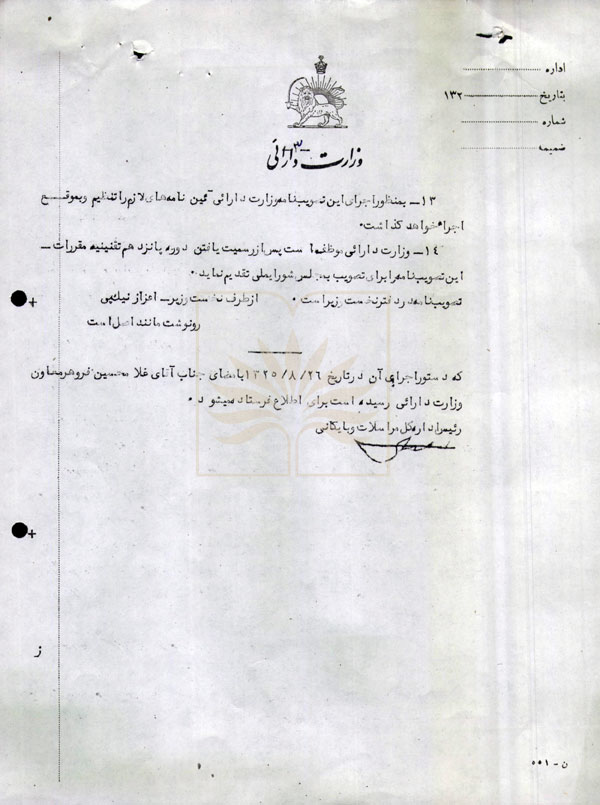 اداره
بتاریخ ۱۳۲
شماره
ضمیمه
وزارت دارائی
۱۳ـ بمنظور اجرای این تصویبنامه وزارت دارائی آئین نامه های لازم را تنظیم و بموقع
اجرا خواهد گذاشت.
۱۴ـ وزارت دارائی موظف است پس از رسمیت یافتن دوره پانزدهم تقنینیه مقررات ـ
این تصویبنامه را برای تصویب بمجلس شورایملی تقدیم نماید.
تصویبنامه در دفتر نخست وزیر است. از طرف نخست وزیر ـ اعزاز نیک پی
رونوشت مانند اصل است
که دستور اجرای آن در تاریخ ۱۳۲۵/۸/۲۶ بامضای جناب آقای غلامحسین فروهر معاون
وزارت دارائی رسیده است برای اطلاع فرستاده میشود.
رئیس اداره کل مراسلات و بایگانی
ز
ن - ۵۵۱